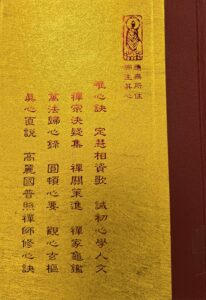 應無所住
而生其心
唯心訣 定慧相資歌 誡初心學人文
禪宗決疑集 禪關策進 禪家龜鑑
萬法歸心錄 圓頓心要 觀心玄樞
眞心直說 高麗國普照禪師修心訣